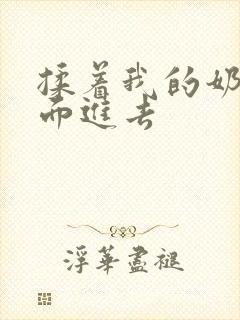 揉着我的奶
而进去
浮華盡褪